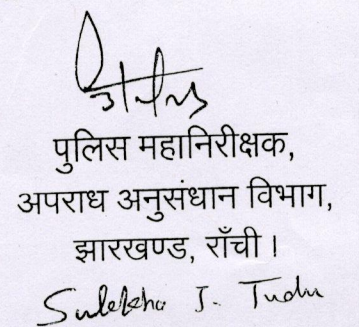 पुलिस महानिरीक्षक,
अपराध अनुसंधान विभाग,
झारखण्ड, राँची ।
Sulekha J. Tudu